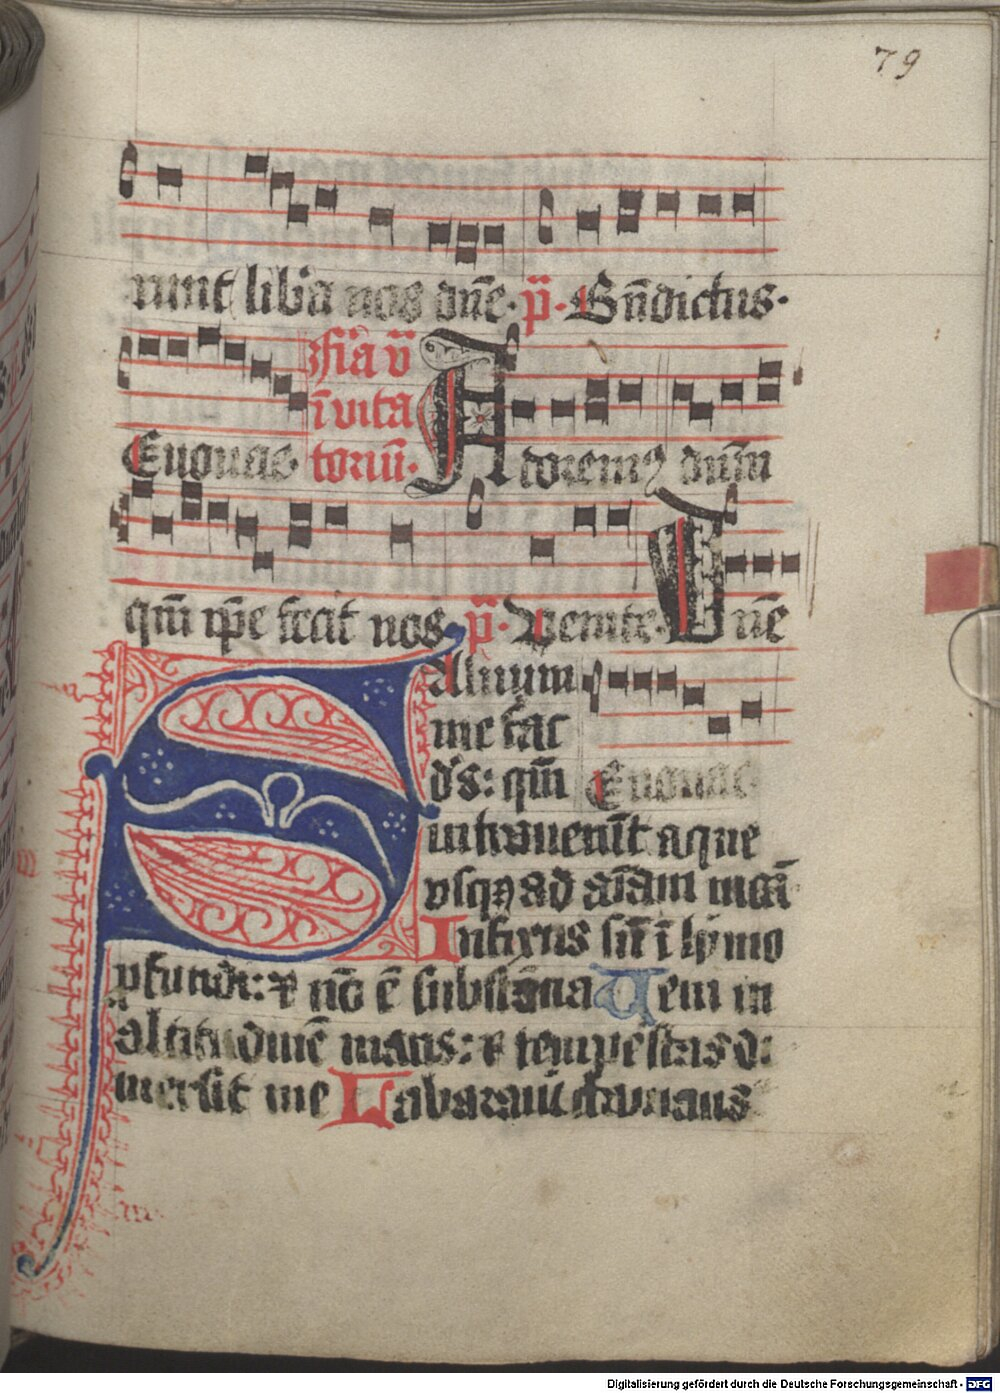 79
runt lib'a nos dñe· p̄s· Bñdictus·
Euouae· fīa v̄ īvita toriū· Adorem9 dñm
qm̄ ip̄e fecit nos· p̄s· Venite· Dñe
Saluum
me fac
d's: qm̄ Euouae
intrauerūt aque
vsq3 ad aīam meā
Infixus sū ī lymo
ꝓfundi: ⁊ nō ē substātia Veni in
altitudinē maris: ⁊ tempestas d:
mersit me Laboraui clamans
Digitalisierung gefördert durch die Deutsche Forschungsgemeinschaft - DFG